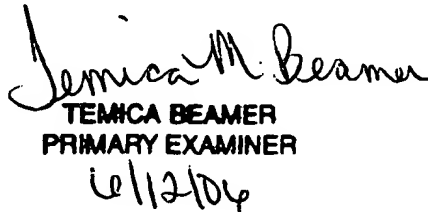 Temica M. Beamer
TEMICA BEAMER
PRIMARY EXAMINER
6/12/06